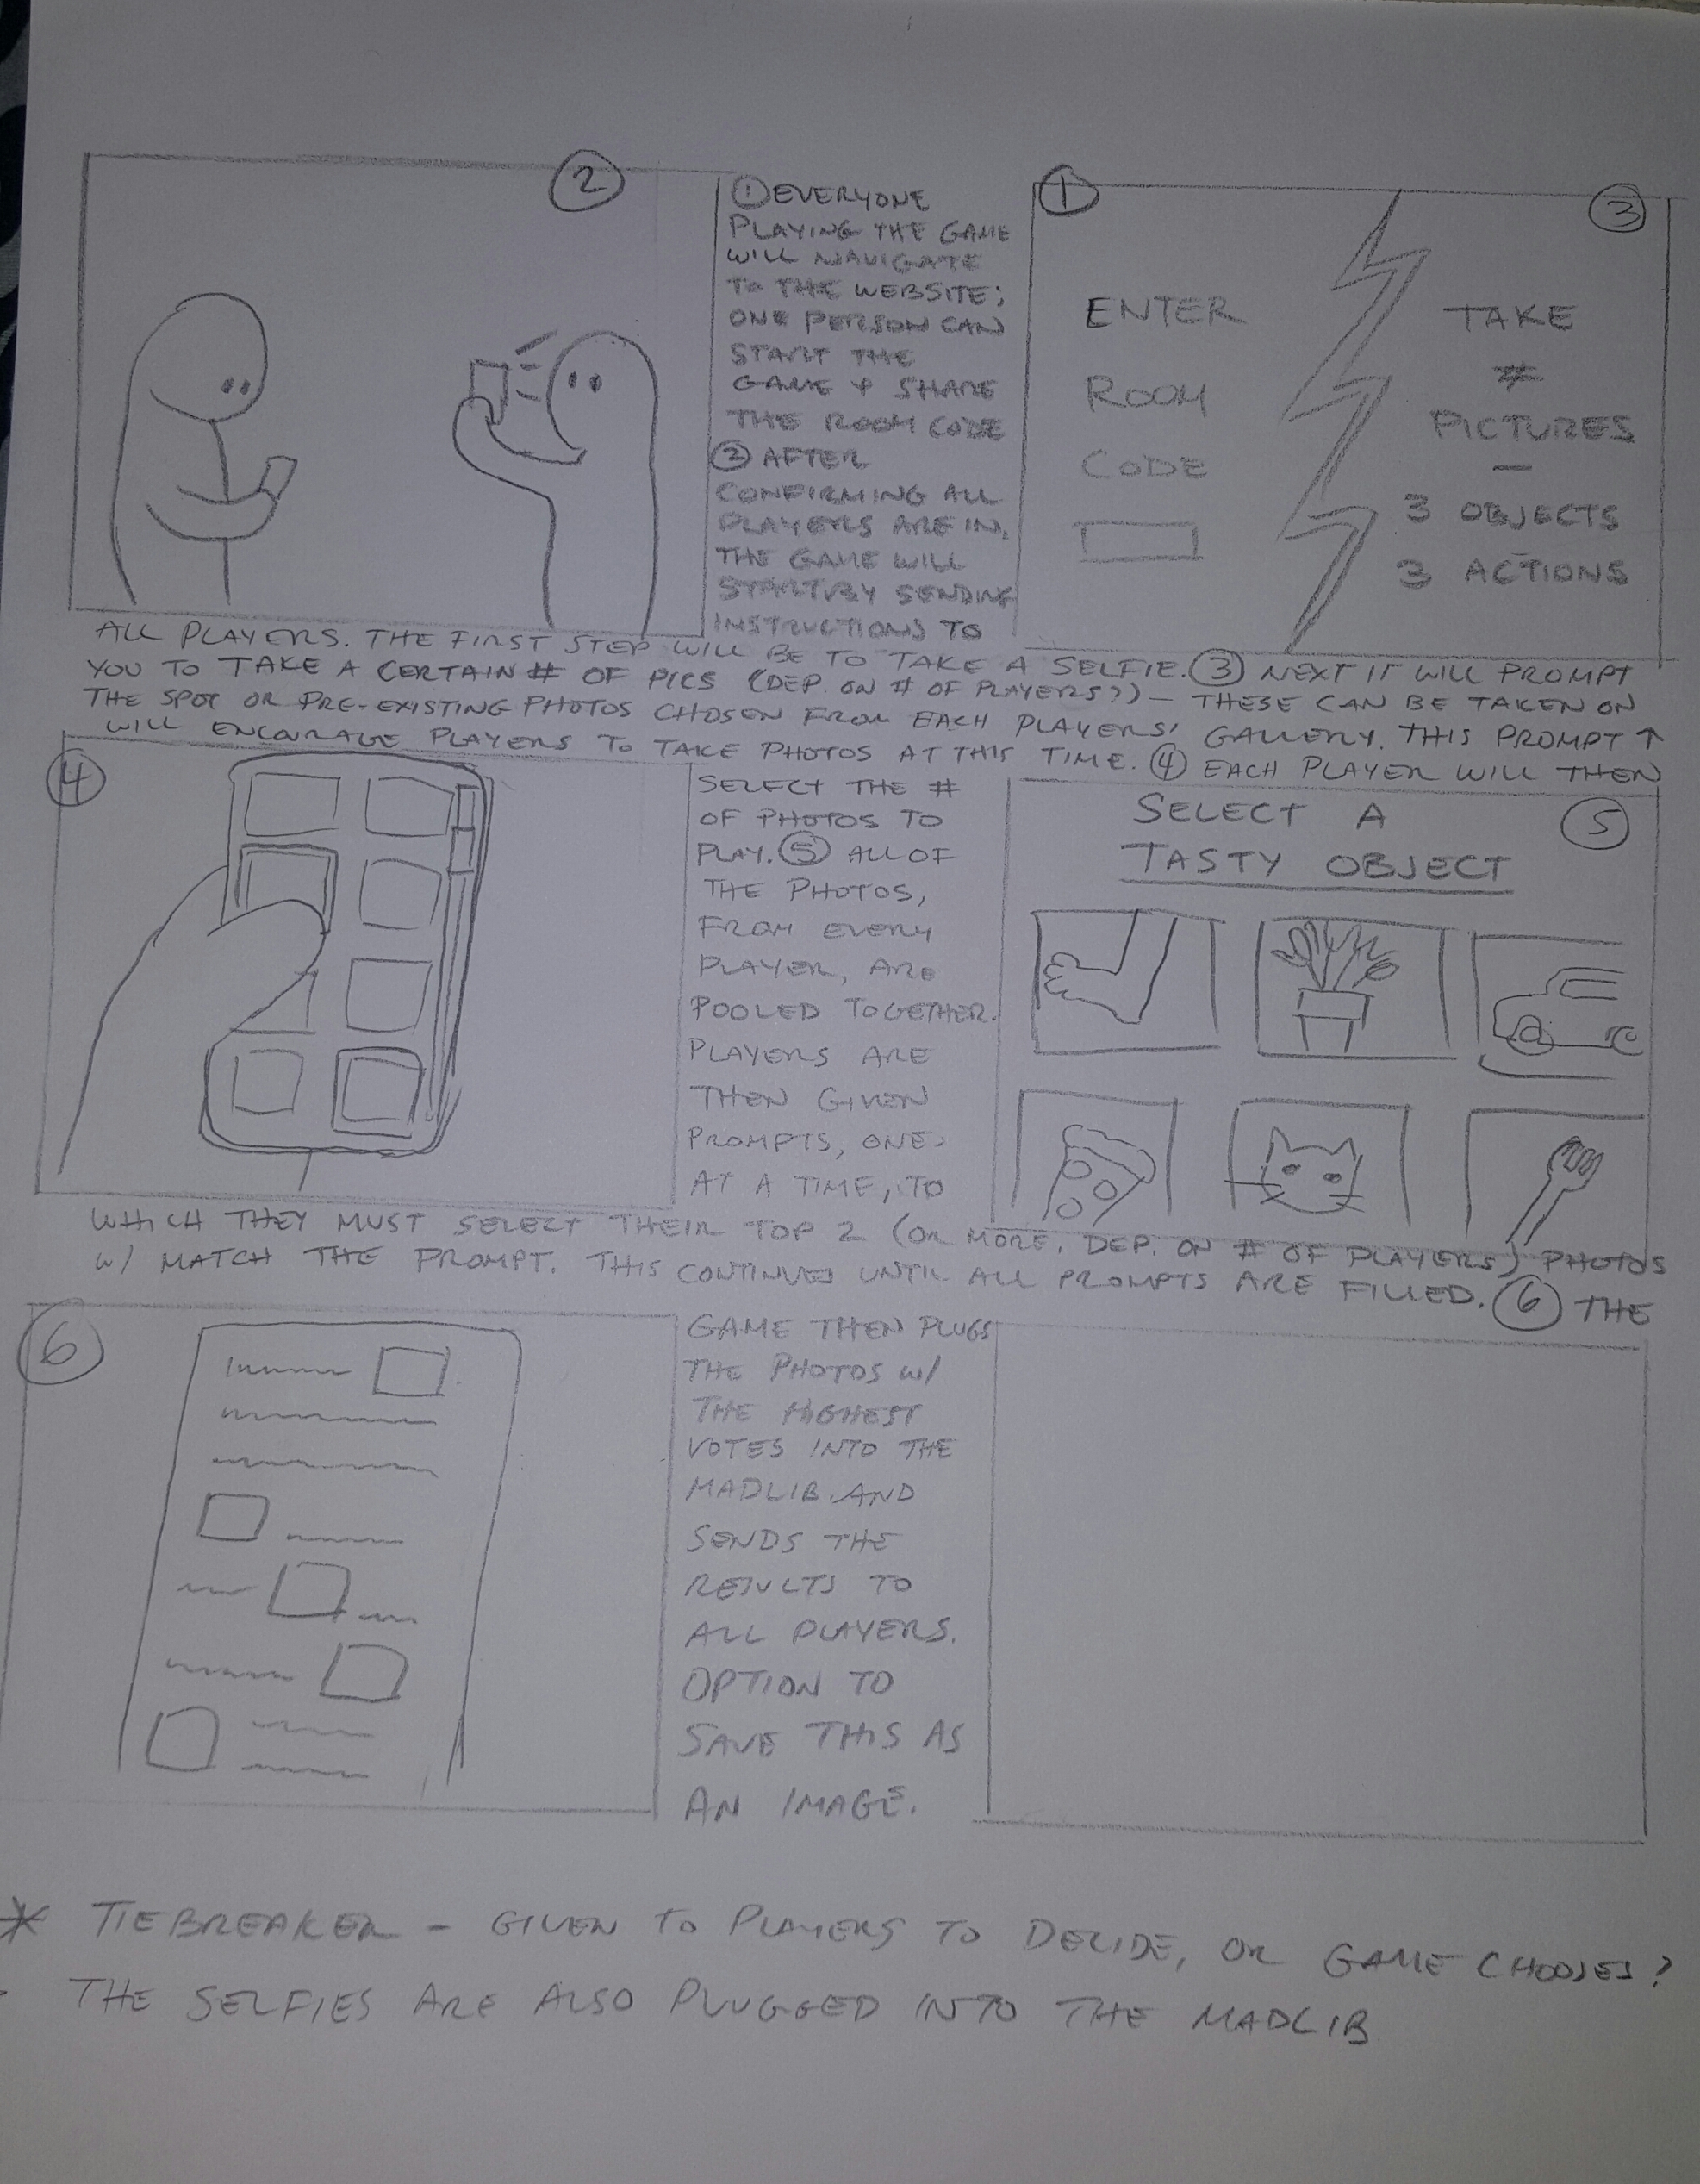 2
① EVERYONE
PLAYING THE GAME
WILL NAVIGATE
TO THE WEBSITE;
ONE PERSON CAN
START THE
GAME & SHARE
THE ROOM CODE
② AFTER
CONFIRMING ALL
PLAYERS ARE IN,
THE GAME WILL
START BY SENDING
INSTRUCTIONS TO
1
ENTER
ROOM
CODE
3
TAKE
#
PICTURES
—
3 OBJECTS
3 ACTIONS
ALL PLAYERS. THE FIRST STEP WILL BE TO TAKE A SELFIE. ③ NEXT IT WILL PROMPT
YOU TO TAKE A CERTAIN # OF PICS (DEP. ON # OF PLAYERS?) — THESE CAN BE TAKEN ON
THE SPOT OR PRE-EXISTING PHOTOS CHOSEN FROM EACH PLAYERS' GALLERY. THIS PROMPT ↑
WILL ENCOURAGE PLAYERS TO TAKE PHOTOS AT THIS TIME. ④ EACH PLAYER WILL THEN
4
SELECT THE #
OF PHOTOS TO
PLAY. ⑤ ALL OF
THE PHOTOS,
FROM EVERY
PLAYER, ARE
POOLED TOGETHER.
PLAYERS ARE
THEN GIVEN
PROMPTS, ONE
AT A TIME, TO
SELECT A
TASTY OBJECT
5
WHICH THEY MUST SELECT THEIR TOP 2 (OR MORE, DEP. ON # OF PLAYERS) PHOTOS
W/ MATCH THE PROMPT. THIS CONTINUES UNTIL ALL PROMPTS ARE FILLED. ⑥ THE
6
GAME THEN PLUGS
THE PHOTOS W/
THE HIGHEST
VOTES INTO THE
MADLIB AND
SENDS THE
RESULTS TO
ALL PLAYERS.
OPTION TO
SAVE THIS AS
AN IMAGE.
* TIEBREAKER – GIVEN TO PLAYERS TO DECIDE, OR GAME CHOOSES?
- THE SELFIES ARE ALSO PLUGGED INTO THE MADLIB